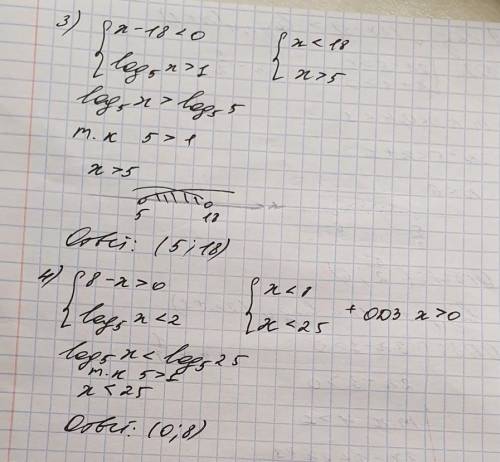 3) { x-18<0    { x<18
{ log₅x>1    { x>5
log₅x > log₅5
т.к 5>1
x>5
5 18
Ответ: (5;18)
4) { 8-x>0    { x<8
{ log₅x<2    { x<25 + ОДЗ x>0
log₅x < log₅25
т.к 5>1
x<25
Ответ: (0;8)